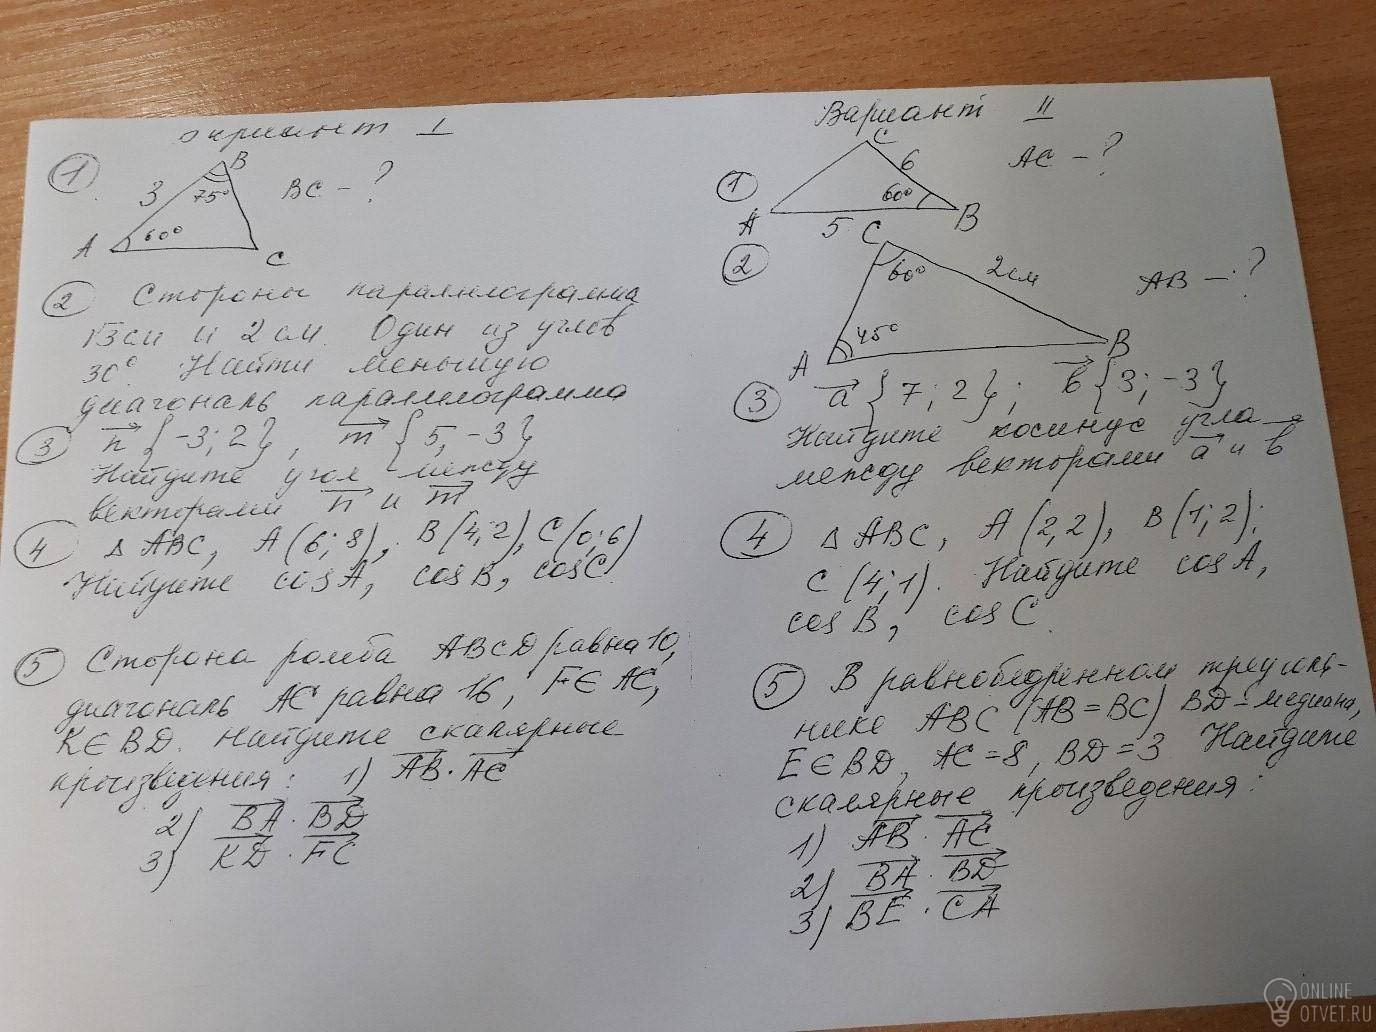 Вариант I
1
B
3
75°
BC - ?
A
60°
C
2 Стороны параллелограмма
√3 см и 2 см. Один из углов
30° Найти меньшую
диагональ параллелограмма
3 n {-3; 2}, m {5, -3}
Найдите угол между
векторами n и m
4 Δ ABC, A (6; 8), B (4; 2), C (0; 6)
Найдите cos A, cos B, cos C.
5 Сторона ромба ABCD равна 10,
диагональ AC равна 16, F ∈ AC,
K ∈ BD. Найдите скалярные
произведения: 1) AB · AC
2) BA · BD
3) KD · FC
Вариант II
C
6
AC - ?
1
60°
A
5
B
C
2
60°
2 см
AB - ?
45°
A
B
3 a {7; 2}; b {3; -3}
Найдите косинус угла
между векторами a и b
4 Δ ABC, A (2, 2), B (1; 2);
C (4; 1). Найдите cos A,
cos B, cos C.
5 В равнобедренном треуголь-
нике ABC (AB = BC) BD - медиана,
E ∈ BD, AC = 8, BD = 3 Найдите
скалярные произведения:
1) AB · AC
2) BA · BD
3) BE · CA
ONLINE
OTVET.RU